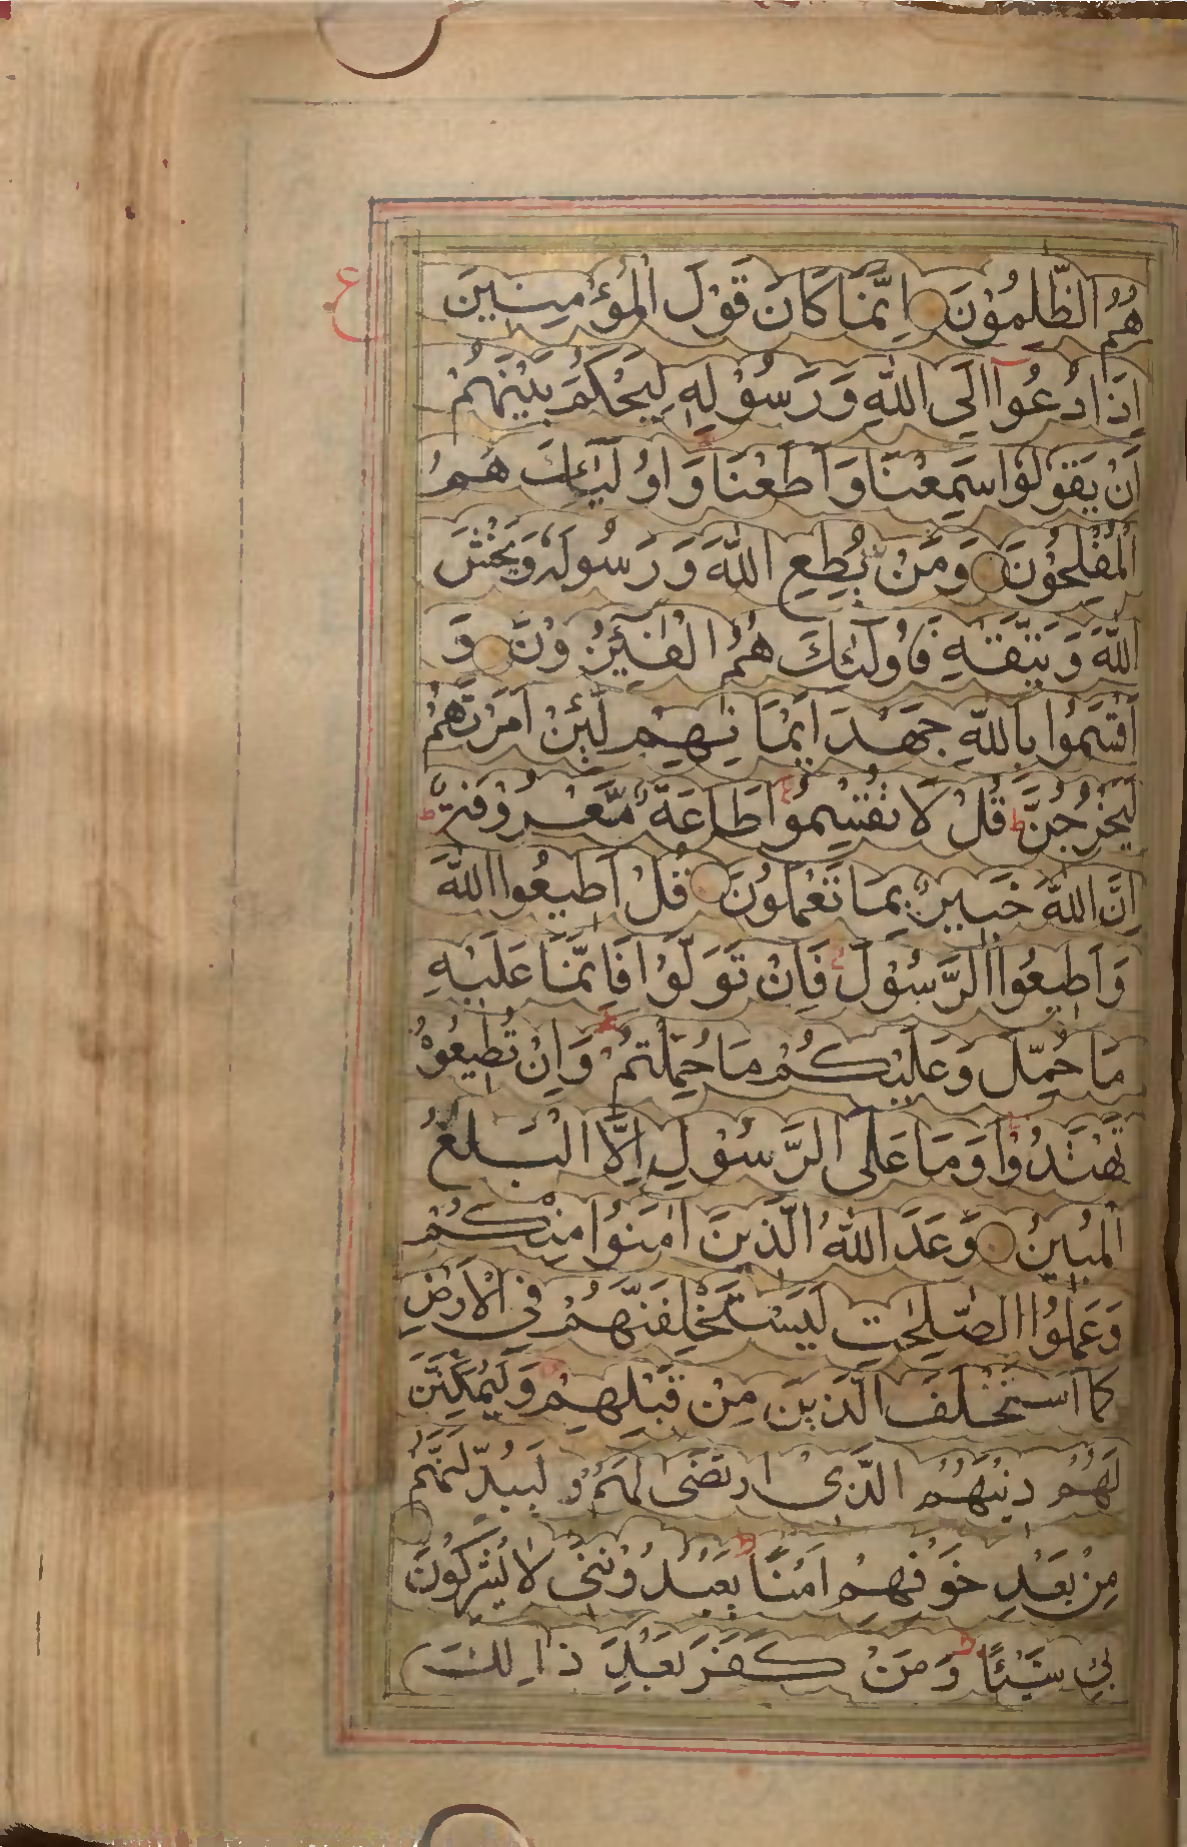 هُمُ الظّٰلِمُوْنَ اِنَّمَا كَانَ قَوْلَ الْمُؤْمِنِيْنَ
ع
اِذَا دُعُوْا اِلَى اللّٰهِ وَرَسُوْلِهٖ لِيَحْكُمَ بَيْنَهُمْ
اَنْ يَقُوْلُوْا سَمِعْنَا وَاَطَعْنَا وَاُولٰٓئِكَ هُمُ
الْمُفْلِحُوْنَ وَمَنْ يُطِعِ اللّٰهَ وَرَسُوْلَهٗ وَيَخْشَ
اللّٰهَ وَيَتَّقْهِ فَاُولٰٓئِكَ هُمُ الْفَآئِزُوْنَ وَ
اَقْسَمُوْا بِاللّٰهِ جَهْدَ اَيْمَانِهِمْ لَئِنْ اَمَرْتَهُمْ
لَيَخْرُجُنَّ ط قُلْ لَا تُقْسِمُوْا ج طَاعَةٌ مَّعْرُوْفَةٌ ط
اِنَّ اللّٰهَ خَبِيْرٌ بِمَا تَعْمَلُوْنَ قُلْ اَطِيْعُوا اللّٰهَ
وَاَطِيْعُوا الرَّسُوْلَ ج فَاِنْ تَوَلَّوْا فَاِنَّمَا عَلَيْهِ
مَا حُمِّلَ وَعَلَيْكُمْ مَا حُمِّلْتُمْ وَاِنْ تُطِيْعُوْهُ
تَهْتَدُوْا وَمَا عَلَى الرَّسُوْلِ اِلَّا الْبَلٰغُ
الْمُبِيْنُ وَعَدَ اللّٰهُ الَّذِيْنَ اٰمَنُوْا مِنْكُمْ
وَعَمِلُوا الصّٰلِحٰتِ لَيَسْتَخْلِفَنَّهُمْ فِى الْاَرْضِ
كَمَا اسْتَخْلَفَ الَّذِيْنَ مِنْ قَبْلِهِمْ وَلَيُمَكِّنَنَّ
لَهُمْ دِيْنَهُمُ الَّذِى ارْتَضٰى لَهُمْ وَلَيُبَدِّلَنَّهُمْ
مِنْ بَعْدِ خَوْفِهِمْ اَمْنًا ط يَعْبُدُوْنَنِىْ لَا يُشْرِكُوْنَ
بِىْ شَيْئًا ط وَمَنْ كَفَرَ بَعْدَ ذَالِكَ